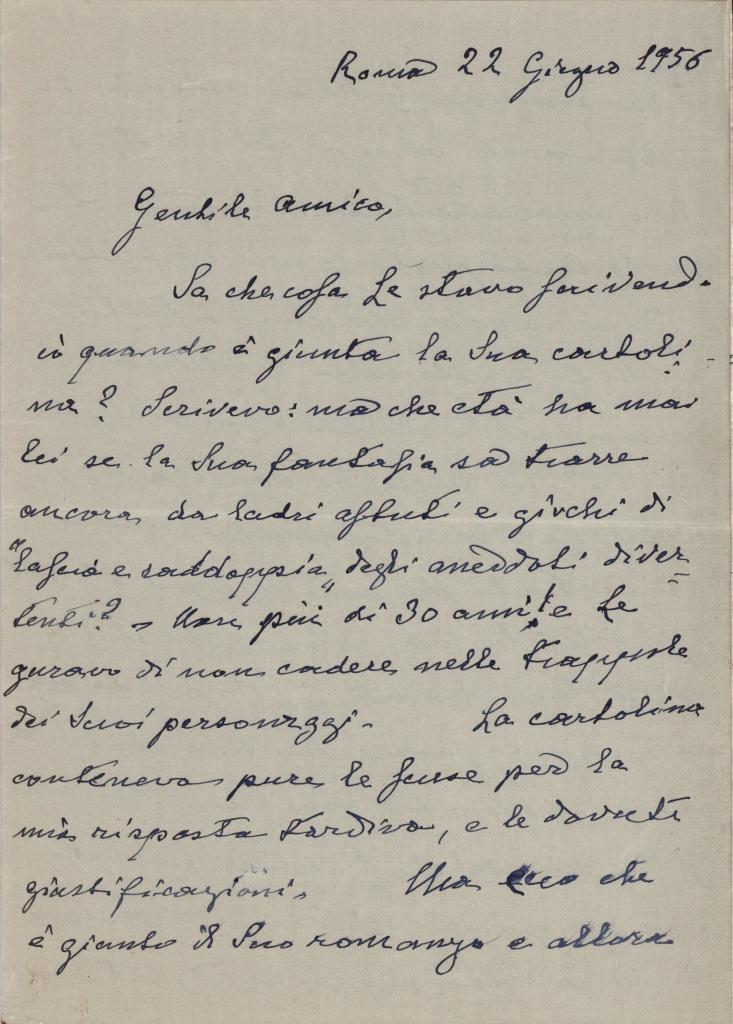 Roma 22 Giugno 1956
Gentile amico,
Sa che cosa Le stavo scrivend.
io quando è giunta la Sua cartoli-
na? Scrivevo: ma che età ha mai
lei se la Sua fantasia sa trarre
ancora da ladri astuti e giochi di
"lascia e raddoppia" degli aneddoti diver=
tenti? - Non più di 30 anni! e Le
guravo di non cadere nelle trappole
dei Suoi personaggi. La cartolina
conteneva pure le scuse per la
mia risposta tardiva, e le dovute
giustificazioni. Ma ecco che
è giunto il Suo romanzo e allora